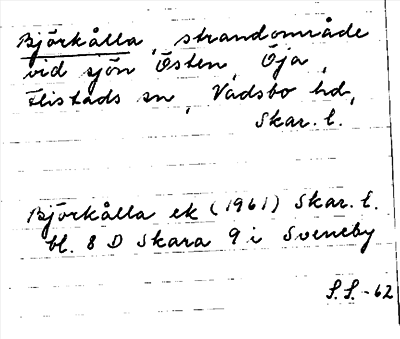 Björkålla, strandområde
vid sjön Östen, Öja,
Flistads sn, Vadsbo hd,
Skar. l.
Björkålla ek (1961) Skar. l.
bl. 8 D Skara 9 i Sveneby
S.S. -62